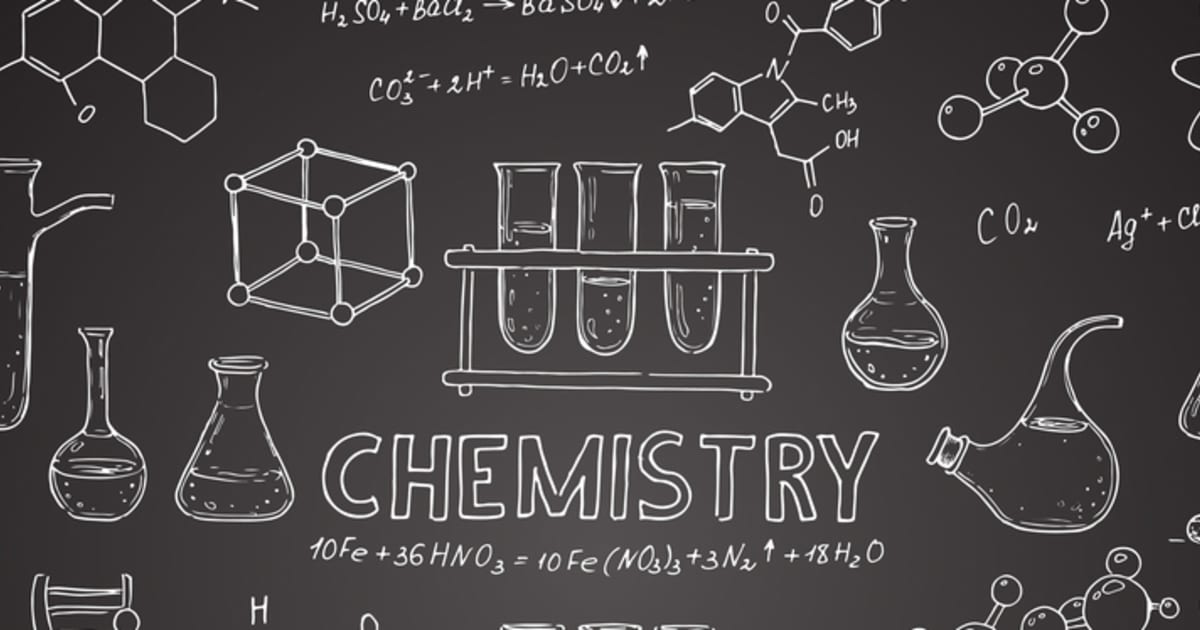 H₂SO₄ + BaCl₂ → BaSO₄↓ + 2
O
CO₃²⁻ + 2H⁺ = H₂O + CO₂↑
N
CH₃
O
OH
O
CO₂
Ag⁺ + Cl
CHEMISTRY
10Fe + 36HNO₃ = 10Fe(NO₃)₃ + 3N₂↑ + 18H₂O
H